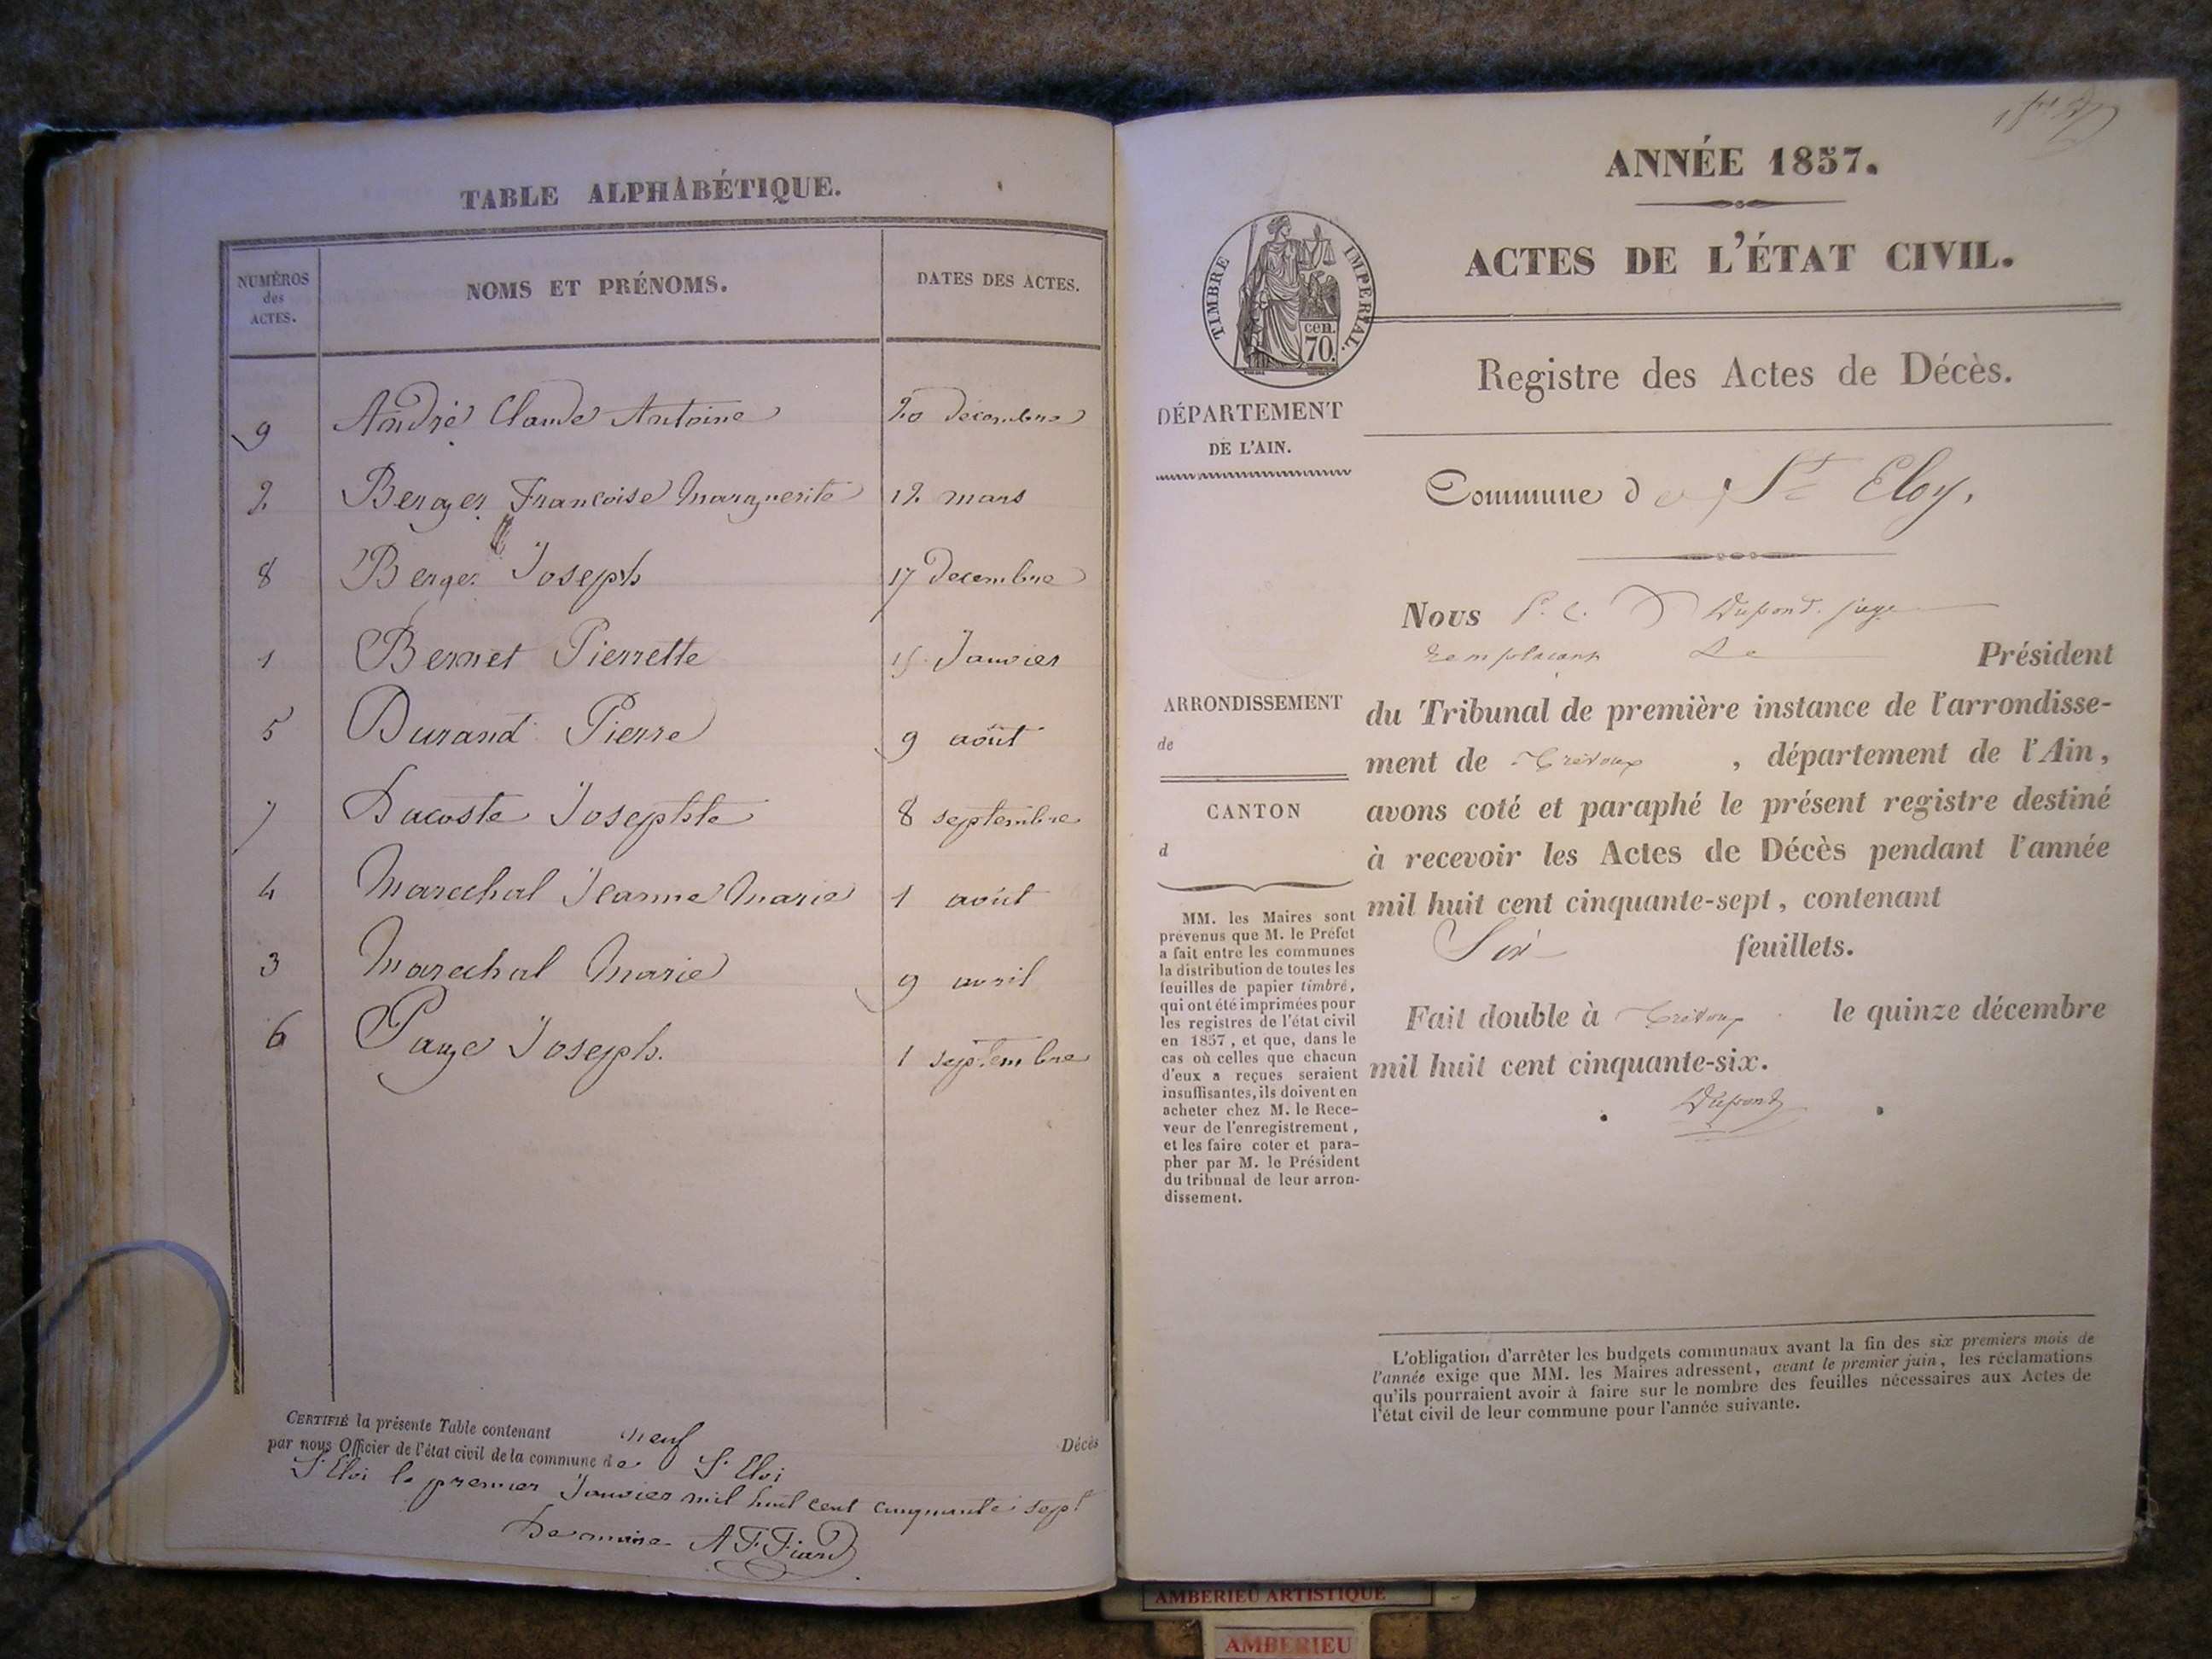 TABLE ALPHABÉTIQUE.
NUMÉROS des ACTES. NOMS ET PRÉNOMS. DATES DES ACTES.
9 André Claude Antoine 20 decembre
2 Berger Francoise Marguerite 12 mars
8 Berger Joseph 17 decembre
1 Bernet Pierrette 15 Janvier
5 Durand Pierre 9 août
7 Lacoste Josephte 8 septembre
4 Marechal Jeanne Marie 1 août
3 Marechal Marie 9 avril
6 Page Joseph. 1 septembre
CERTIFIÉ la présente Table contenant neuf Décès
par nous Officier de l'état civil de la commune de St Eloi
St Eloi le premier Janvier mil huit cent cinquante sept
Le maire A F Fiard
ANNÉE 1857.
ACTES DE L'ÉTAT CIVIL.
TIMBRE IMPERIAL.
cen.
70.
Registre des Actes de Décès.
DÉPARTEMENT
DE L'AIN.
Commune de St Eloy.
Nous P. C. Dupond. juge
remplacant Le Président
du Tribunal de première instance de l'arrondisse-
ment de Trévoux, département de l'Ain,
avons coté et paraphé le présent registre destiné
à recevoir les Actes de Décès pendant l'année
mil huit cent cinquante-sept, contenant
Six feuillets.
Fait double à Trévoux le quinze décembre
mil huit cent cinquante-six.
Dupond
ARRONDISSEMENT
de
CANTON
d
MM. les Maires sont
prévenus que M. le Préfet
a fait entre les communes
la distribution de toutes les
feuilles de papier timbré,
qui ont été imprimées pour
les registres de l'état civil
en 1857, et que, dans le
cas où celles que chacun
d'eux a reçues seraient
insuffisantes, ils doivent en
acheter chez M. le Rece-
veur de l'enregistrement,
et les faire coter et para-
pher par M. le Président
du tribunal de leur arron-
dissement.
L'obligation d'arrêter les budgets communaux avant la fin des six premiers mois de
l'année exige que MM. les Maires adressent, avant le premier juin, les réclamations
qu'ils pourraient avoir à faire sur le nombre des feuilles nécessaires aux Actes de
l'état civil de leur commune pour l'année suivante.
AMBERIEU ARTISTIQUE
AMBERIEU